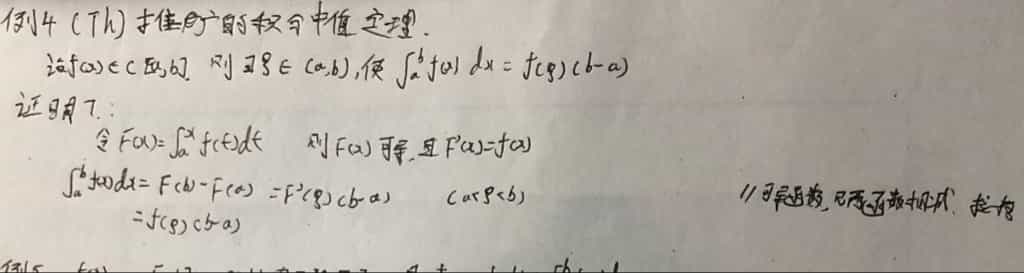 例4 (Th) 推广的积分中值定理.
设f(x)∈C[a,b]. 则∃ξ∈(a,b),使∫ₐᵇf(x)dx=f(ξ)(b-a)
证明:
令F(x)=∫ₐˣf(t)dt 则F(x)可导,且F'(x)=f(x)
∫ₐᵇf(x)dx=F(b)-F(a)=F'(ξ)(b-a) (a<ξ<b) //可导函数,只两函数相减、拉格
=f(ξ)(b-a)
例5